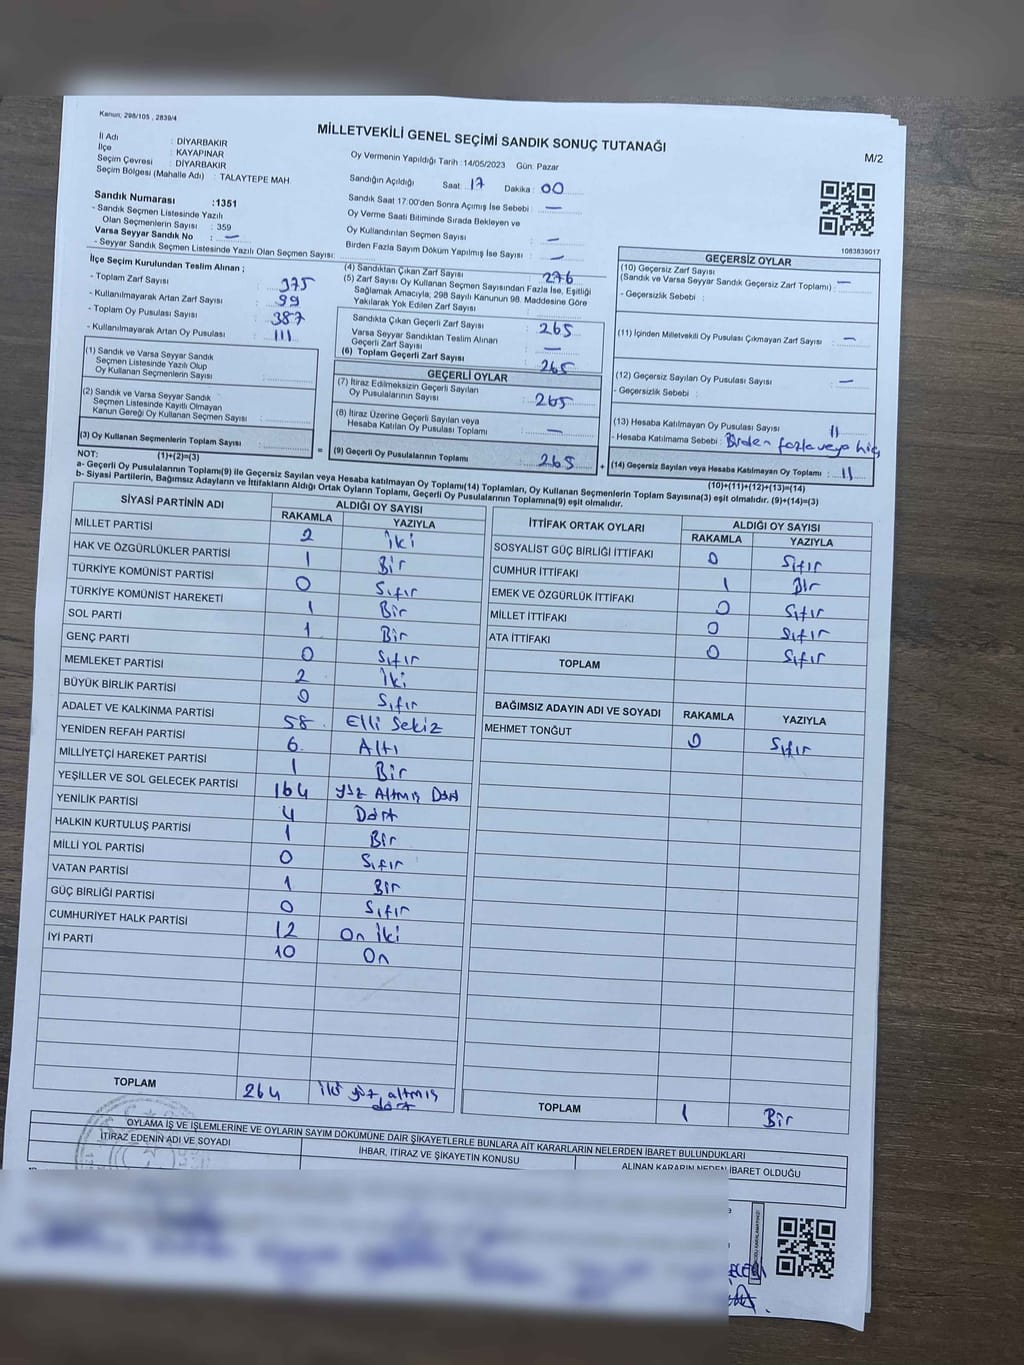 Kanun; 298/105 , 2839/4
MİLLETVEKİLİ GENEL SEÇİMİ SANDIK SONUÇ TUTANAĞI
M/2
İl Adı : DİYARBAKIR
İlçe : KAYAPINAR
Seçim Çevresi : DİYARBAKIR
Seçim Bölgesi (Mahalle Adı) : TALAYTEPE MAH.
Oy Vermenin Yapıldığı Tarih : 14/05/2023 Gün: Pazar
Sandığın Açıldığı Saat : 17 Dakika : 00
Sandık Saat 17:00'den Sonra Açımış İse Sebebi : —
Oy Verme Saati Bitiminde Sırada Bekleyen ve
Oy Kullandırılan Seçmen Sayısı : —
Birden Fazla Sayım Döküm Yapılmış İse Sayısı : —
Sandık Numarası :1351
- Sandık Seçmen Listesinde Yazılı
Olan Seçmenlerin Sayısı : 359
Varsa Seyyar Sandık No : —
- Seyyar Sandık Seçmen Listesinde Yazılı Olan Seçmen Sayısı:
1083839017
İlçe Seçim Kurulundan Teslim Alınan ;
- Toplam Zarf Sayısı : 375
- Kullanılmayarak Artan Zarf Sayısı : 99
- Toplam Oy Pusulası Sayısı : 387
- Kullanılmayarak Artan Oy Pusulası : 111
(1) Sandık ve Varsa Seyyar Sandık
Seçmen Listesinde Yazılı Olup
Oy Kullanan Seçmenlerin Sayısı :
(2) Sandık ve Varsa Seyyar Sandık
Seçmen Listesinde Kayıtlı Olmayan
Kanun Gereği Oy Kullanan Seçmen Sayısı :
(3) Oy Kullanan Seçmenlerin Toplam Sayısı :
(1)+(2)=(3)
(4) Sandıktan Çıkan Zarf Sayısı : 276
(5) Zarf Sayısı Oy Kullanan Seçmen Sayısından Fazla İse, Eşitliği
Sağlamak Amacıyla, 298 Sayılı Kanunun 98. Maddesine Göre
Yakılarak Yok Edilen Zarf Sayısı :
Sandıkta Çıkan Geçerli Zarf Sayısı : 265
Varsa Seyyar Sandıktan Teslim Alınan
Geçerli Zarf Sayısı : —
(6) Toplam Geçerli Zarf Sayısı : 265
GEÇERLİ OYLAR
(7) İtiraz Edilmeksizin Geçerli Sayılan
Oy Pusulalarının Sayısı : 265
(8) İtiraz Üzerine Geçerli Sayılan veya
Hesaba Katılan Oy Pusulası Toplamı : —
= (9) Geçerli Oy Pusulalarının Toplamı : 265 +
GEÇERSİZ OYLAR
(10) Geçersiz Zarf Sayısı
(Sandık ve Varsa Seyyar Sandık Geçersiz Zarf Toplamı) : —
- Geçersizlik Sebebi :
(11) İçinden Milletvekili Oy Pusulası Çıkmayan Zarf Sayısı : —
(12) Geçersiz Sayılan Oy Pusulası Sayısı : —
- Geçersizlik Sebebi :
(13) Hesaba Katılmayan Oy Pusulası Sayısı : 11
- Hesaba Katılmama Sebebi : Birden fazla veya hiç
(14) Geçersiz Sayılan veya Hesaba Katılmayan Oy Toplamı : 11
(10)+(11)+(12)+(13)=(14)
NOT:
a- Geçerli Oy Pusulalarının Toplamı(9) ile Geçersiz Sayılan veya Hesaba katılmayan Oy Toplamı(14) Toplamları, Oy Kullanan Seçmenlerin Toplam Sayısına(3) eşit olmalıdır. (9)+(14)=(3)
b- Siyasi Partilerin, Bağımsız Adayların ve İttifakların Aldığı Ortak Oyların Toplamı, Geçerli Oy Pusulalarının Toplamına(9) eşit olmalıdır.
SİYASİ PARTİNİN ADI ALDIĞI OY SAYISI
RAKAMLA YAZIYLA
MİLLET PARTİSİ 2 iki
HAK VE ÖZGÜRLÜKLER PARTİSİ 1 Bir
TÜRKİYE KOMÜNİST PARTİSİ 0 Sıfır
TÜRKİYE KOMÜNİST HAREKETİ 1 Bir
SOL PARTİ 1 Bir
GENÇ PARTİ 0 Sıfır
MEMLEKET PARTİSİ 2 iki
BÜYÜK BİRLİK PARTİSİ 0 Sıfır
ADALET VE KALKINMA PARTİSİ 58 Elli Sekiz
YENİDEN REFAH PARTİSİ 6 Altı
MİLLİYETÇİ HAREKET PARTİSİ 1 Bir
YEŞİLLER VE SOL GELECEK PARTİSİ 164 yüz Altmış Dört
YENİLİK PARTİSİ 4 Dört
HALKIN KURTULUŞ PARTİSİ 1 Bir
MİLLİ YOL PARTİSİ 0 Sıfır
VATAN PARTİSİ 1 Bir
GÜÇ BİRLİĞİ PARTİSİ 0 Sıfır
CUMHURİYET HALK PARTİSİ 12 On iki
İYİ PARTİ 10 On
TOPLAM 264 iki yüz altmış
dört
İTTİFAK ORTAK OYLARI ALDIĞI OY SAYISI
RAKAMLA YAZIYLA
SOSYALİST GÜÇ BİRLİĞİ İTTİFAKI 0 Sıfır
CUMHUR İTTİFAKI 1 Bir
EMEK VE ÖZGÜRLÜK İTTİFAKI 0 Sıfır
MİLLET İTTİFAKI 0 Sıfır
ATA İTTİFAKI 0 Sıfır
TOPLAM
BAĞIMSIZ ADAYIN ADI VE SOYADI RAKAMLA YAZIYLA
MEHMET TONĞUT 0 Sıfır
TOPLAM 1 Bir
OYLAMA İŞ VE İŞLEMLERİNE VE OYLARIN SAYIM DÖKÜMÜNE DAİR ŞİKAYETLERLE BUNLARA AİT KARARLARIN NELERDEN İBARET BULUNDUKLARI
İTİRAZ EDENİN ADI VE SOYADI İHBAR, İTİRAZ VE ŞİKAYETİN KONUSU ALINAN KARARIN NEDEN İBARET OLDUĞU